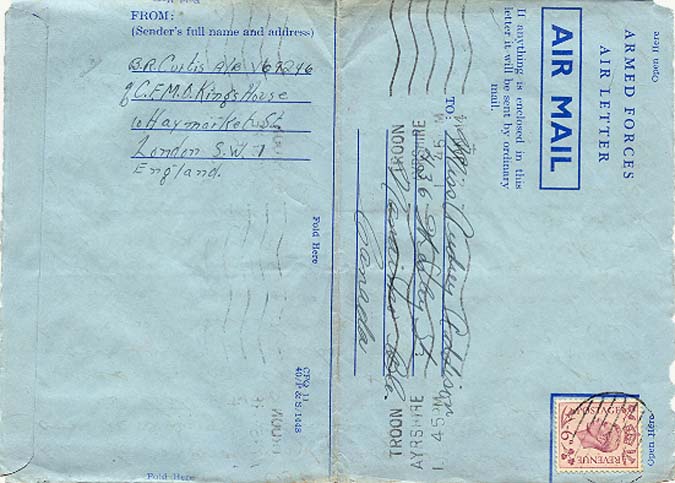 FROM:
(Sender's full name and address)
B.R. Curtis A/B V67246
℅ C.F.M.O. Kings House
10 Haymarket St
London S.W. 1
England.
Fold Here
CFQ 11
40/P&S/1448
Fold Here
Open Here
ARMED FORCES
AIR LETTER
AIR MAIL
If anything is enclosed in this
letter it will be sent by ordinary
mail.
TO:
Miss Audrey Addison
436 St.
Nanaimo B.C.
Canada
TROON
AYRSHIRE
1 45 PM
TROON
AYRSHIRE
1 45 PM
Open Here
POSTAGE
6D
REVENUE